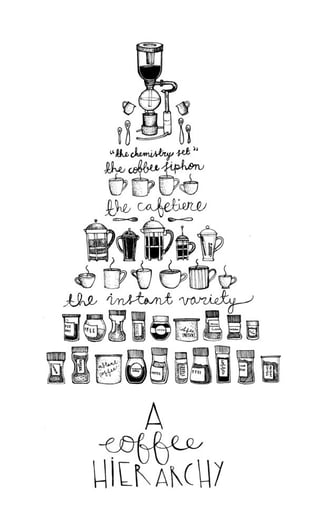 "the chemistry set"
the coffee siphon
the cafetiere
the instant variety
A
coffee
HIERARCHY